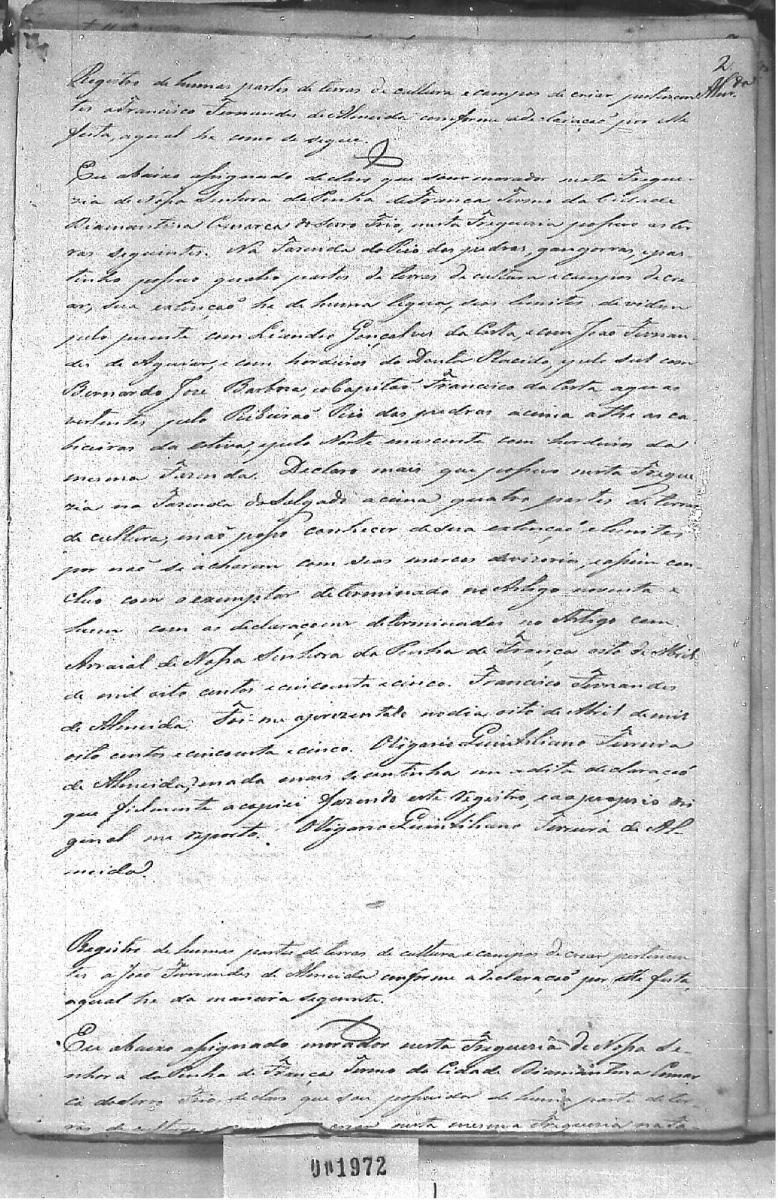 2
Alm.da
Registro de humas partes de terras de cultura e campos de criar pertencen
tes a Francisco Fernandes de Almeida conforme a declaraçaõ por elle
feita, a qual he como se segue.
Eu abaixo assignado declaro que sou morador nesta Fregue-
zia de Nossa Senhora da Penha de França Termo da Cidade
Diamantina Comarca do Serro Frio, nesta Freguezia possuo as ter
ras seguintes. Na Fazenda do Rio das pedras, gangorras, e pas-
tinho possuo quatro partes de terras de cultura e campos de cri-
ar, sua extençaõ he de huma legua, seos limites devidem
pelo puente com Leandro Gonçalves da Costa, e com João Fernan-
des de Aguiar, e com herdeiros do Doutor Placido, e pelo sul com
Bernardo José Barbosa, e o Capitaõ Francisco da Costa, aguas
vertentes pelo Ribeiraõ Rio das pedras acima athe as ca-
biceiras da estiva, e pelo Norte e nascente com herdeiros da
mesma Fazenda. Declaro mais que possuo nesta Fregue
zia na Fazenda do Salgado acima quatro partes de terras
de cultura, e naõ posso conhecer de sua extençaõ e limites
por naõ se acharem com seos marcos devizorio, e assim con-
cluo com o exemplar determinado no Artigo noventa e
hum com as declaraçoens determinadas no Artigo cem
Arraial de Nossa Senhora da Penha de França oito de Abril
de mil oito centos e cincoenta e cinco. Francisco Fernandes
de Almeida. Foi-me aprezentado no dia oito de Abril de mil
oito centos e cincoenta e cinco. Oligario Quintiliano Ferreira
de Almeida, e nada mais se continha em a dita declaraçaõ
que fielmente a copiei fazendo este registro, e ao proprio ori
ginal me reporto. Oligario Quintiliano Ferreira de Al-
meida.
Registro de humas partes de terras de cultura e campos de criar pertencen
tes a João Fernandes de Almeida conforme a declaraçaõ por elle feita,
a qual he da maneira seguinte.
Eu abaixo assignado morador nesta Freguezia de Nossa Se-
nhora da Penha de França Termo da Cidade Diamantina Comar
ca do Serro Frio, declaro que sou possuidor de huma parte de ter-
ras de cultura criar nesta mesma Freguezia na Fa-
1972